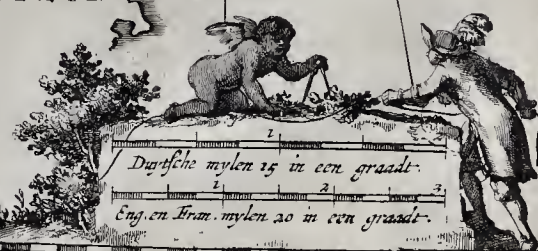 1
Duytsche mylen 15 in een graadt.
1 2 3
Eng. en Fran. mylen 20 in een graadt.